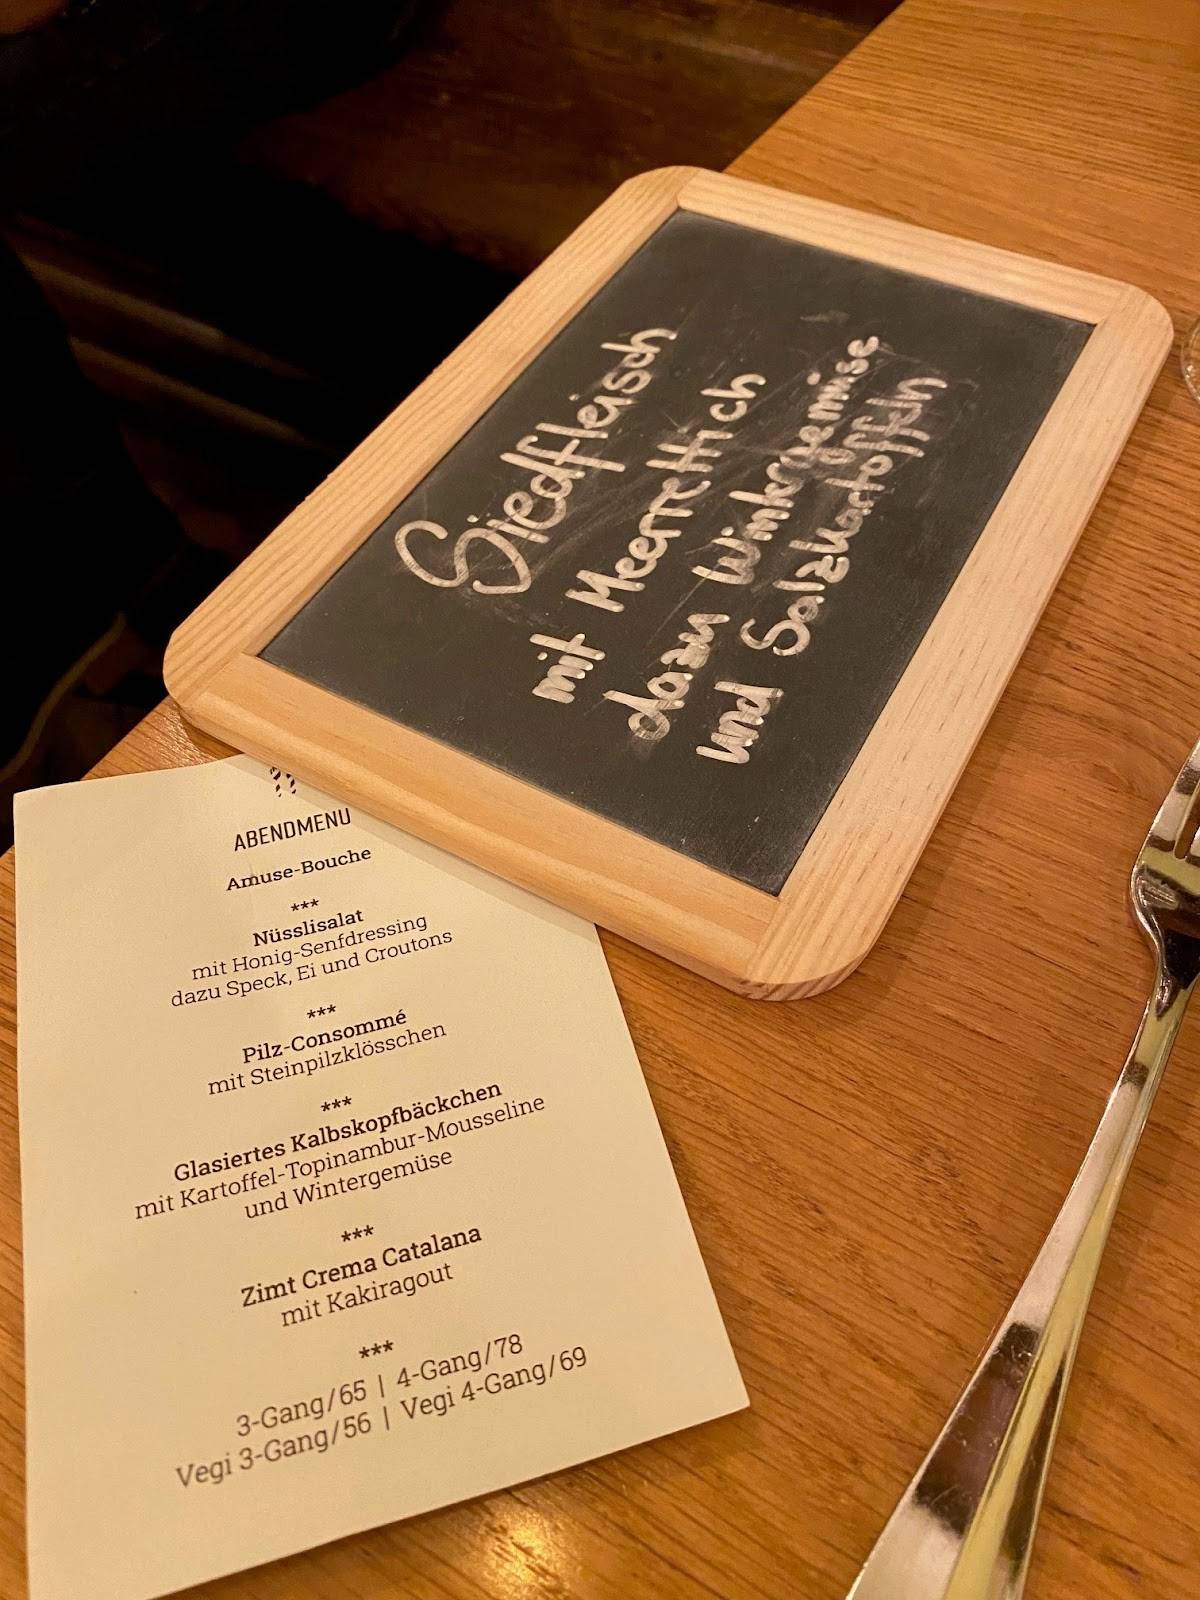 Siedfleisch
mit Meerrettich
dazu Wintergemüse
und Salzkartoffeln
ABENDMENU
Amuse-Bouche
***
Nüsslisalat
mit Honig-Senfdressing
dazu Speck, Ei und Croutons
***
Pilz-Consommé
mit Steinpilzklösschen
***
Glasiertes Kalbskopfbäckchen
mit Kartoffel-Topinambur-Mousseline
und Wintergemüse
***
Zimt Crema Catalana
mit Kakiragout
***
3-Gang/65 | 4-Gang/78
Vegi 3-Gang/56 | Vegi 4-Gang/69